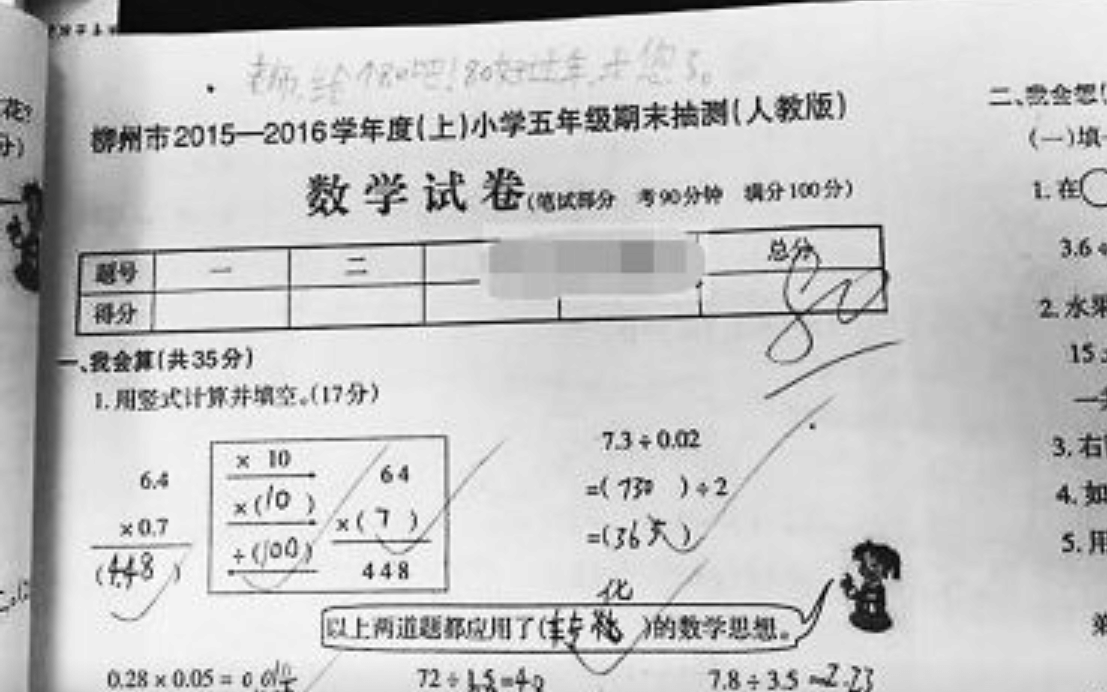 老师,给个80吧!80好过年,求您了。
柳州市2015—2016学年度(上)小学五年级期末抽测(人教版)
数学试卷(笔试部分 考90分钟 满分100分)
题号 一 二 总分
得分 80
一、我会算(共35分)
1.用竖式计算并填空。(17分)
6.4
×0.7
(4.48)
× 10
×(10)
÷(100)
64
×(7)
448
7.3÷0.02
=(730)÷2
=(365)
以上两道题都应用了(转化)的数学思想。
0.28×0.05=
72÷1.5=
7.8÷3.5≈2.23
花?
分)
二、我会想(
(一)填
1.在
3.6÷
2.水果
15
3.右
4.如
5.用